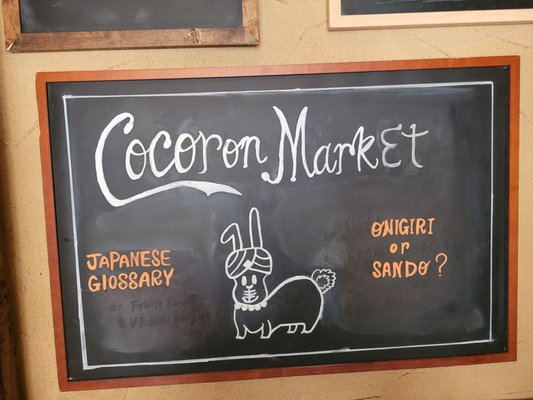 Cocoron Market
JAPANESE
GlOSSARY
ONIGIRI
or
SANDO?
VEGAN